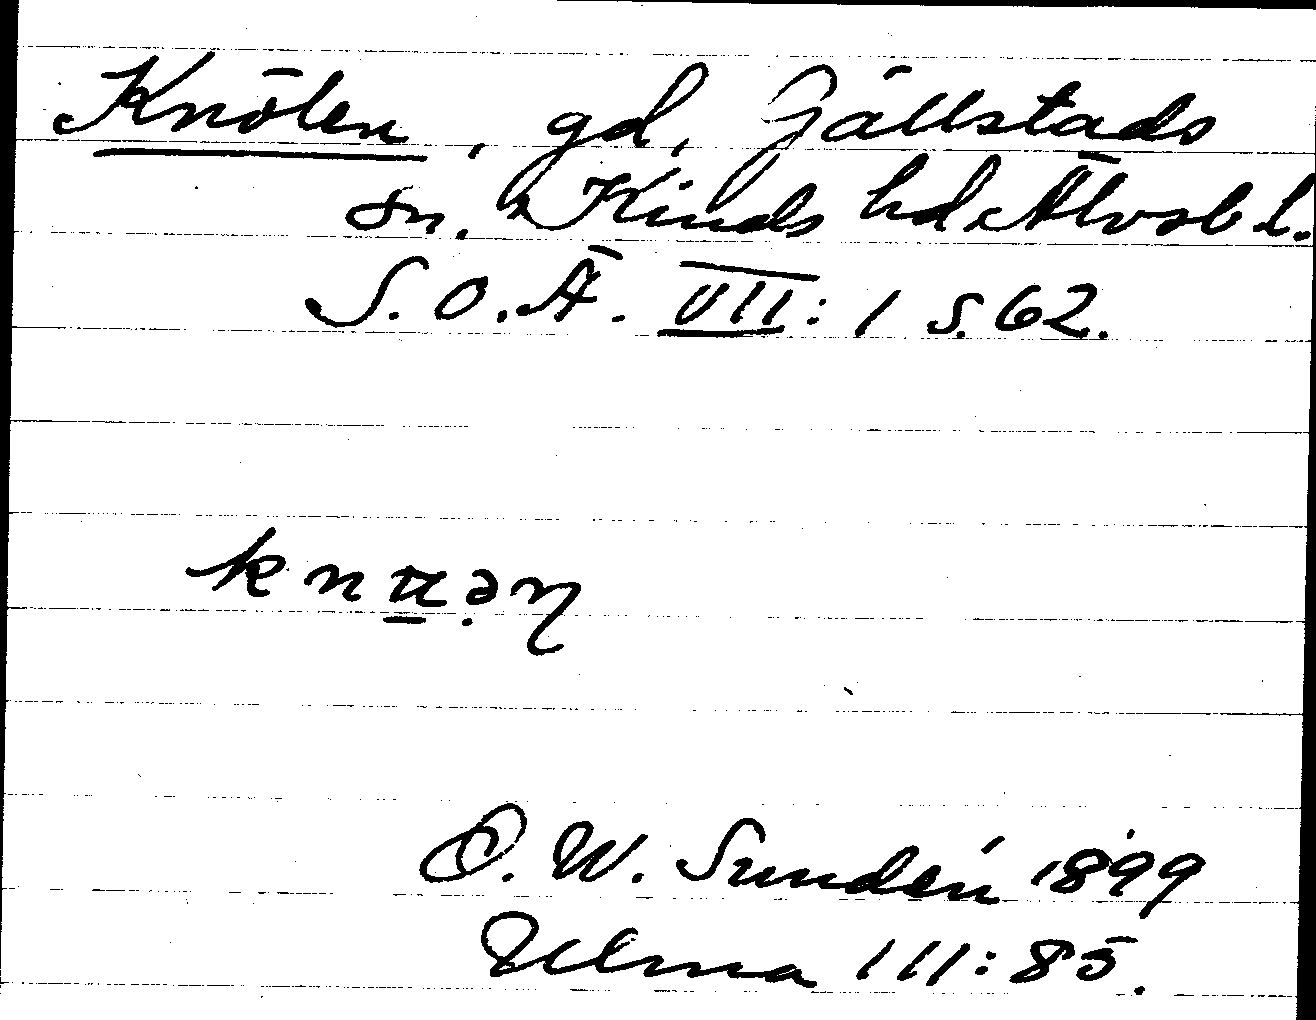 Knölen, gd, Gällstads
sn. Kinds hd Älvsb l.
S.O.Ä. VII: 1 s. 62.
O. W. Sundén 1899
Ulma 111: 85.